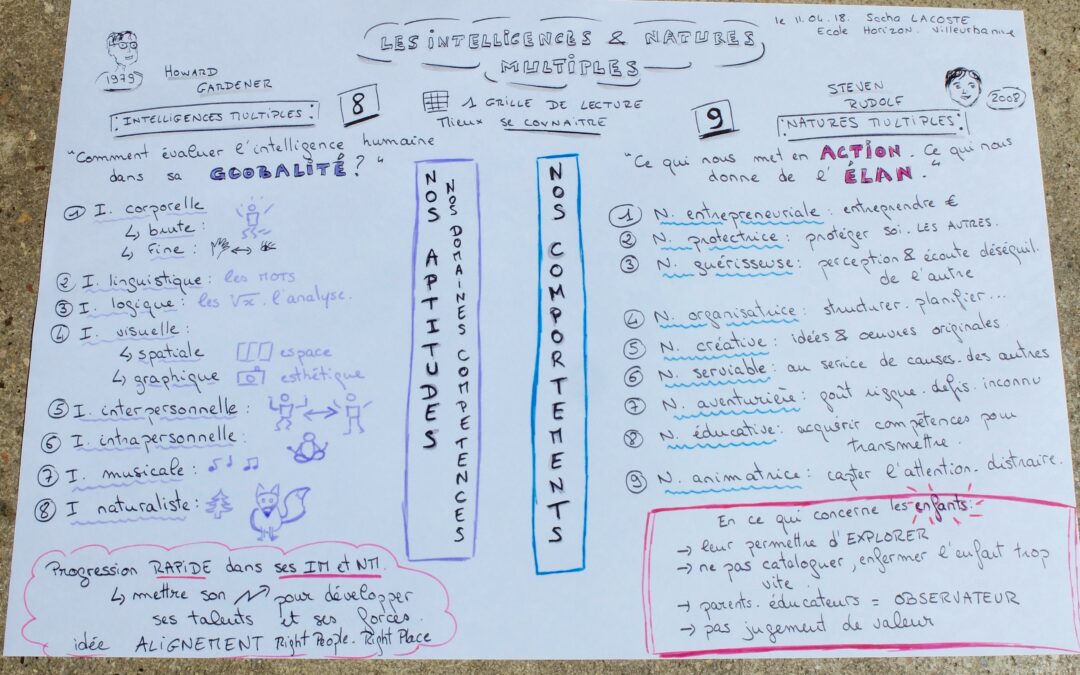 le 11.04.18. Sacha LACOSTE
Ecole Horizon. Villeurbanne
LES INTELLIGENCES & NATURES
MULTIPLES
1979
HOWARD
GARDENER
8
INTELLIGENCES MULTIPLES
"Comment évaluer l'intelligence humaine
dans sa GLOBALITÉ ? "
① I. corporelle
↳ brute :
↳ fine :
② I. linguistique : les MOTS
③ I. logique : les √x. l'analyse.
④ I. visuelle :
↳ spatiale espace
↳ graphique esthétique
⑤ I. interpersonnelle :
⑥ I. intrapersonnelle :
⑦ I. musicale :
⑧ I naturaliste :
Progression RAPIDE dans ses IM et NM.
↳ mettre son pour développer
ses talents et ses forces.
idée ALIGNEMENT Right People. Right Place
1 GRILLE DE LECTURE
Mieux se CONNAITRE
NOS APTITUDES
NOS DOMAINES COMPETENCES
NOS COMPORTEMENTS
STEVEN
RUDOLF
2008
9
NATURES MULTIPLES
"Ce qui nous met en ACTION. Ce qui nous
donne de l'ÉLAN."
① N. entrepreneuriale : entreprendre €
② N. protectrice : protéger soi. LES AUTRES.
③ N. guérisseuse : perception & écoute déséquil.
de l'autre
④ N. organisatrice : structurer. planifier...
⑤ N. créative : idées & oeuvres originales.
⑥ N. serviable : au service de causes. des autres
⑦ N. aventurière : goût risque. défis. inconnu
⑧ N. éducative : acquérir compétences pour
transmettre.
⑨ N. animatrice : capter l'attention. distraire.
En ce qui concerne les enfants :
→ leur permettre d'EXPLORER
→ ne pas cataloguer, enfermer l'enfant trop
vite.
→ parents. éducateurs = OBSERVATEUR
→ pas jugement de valeur